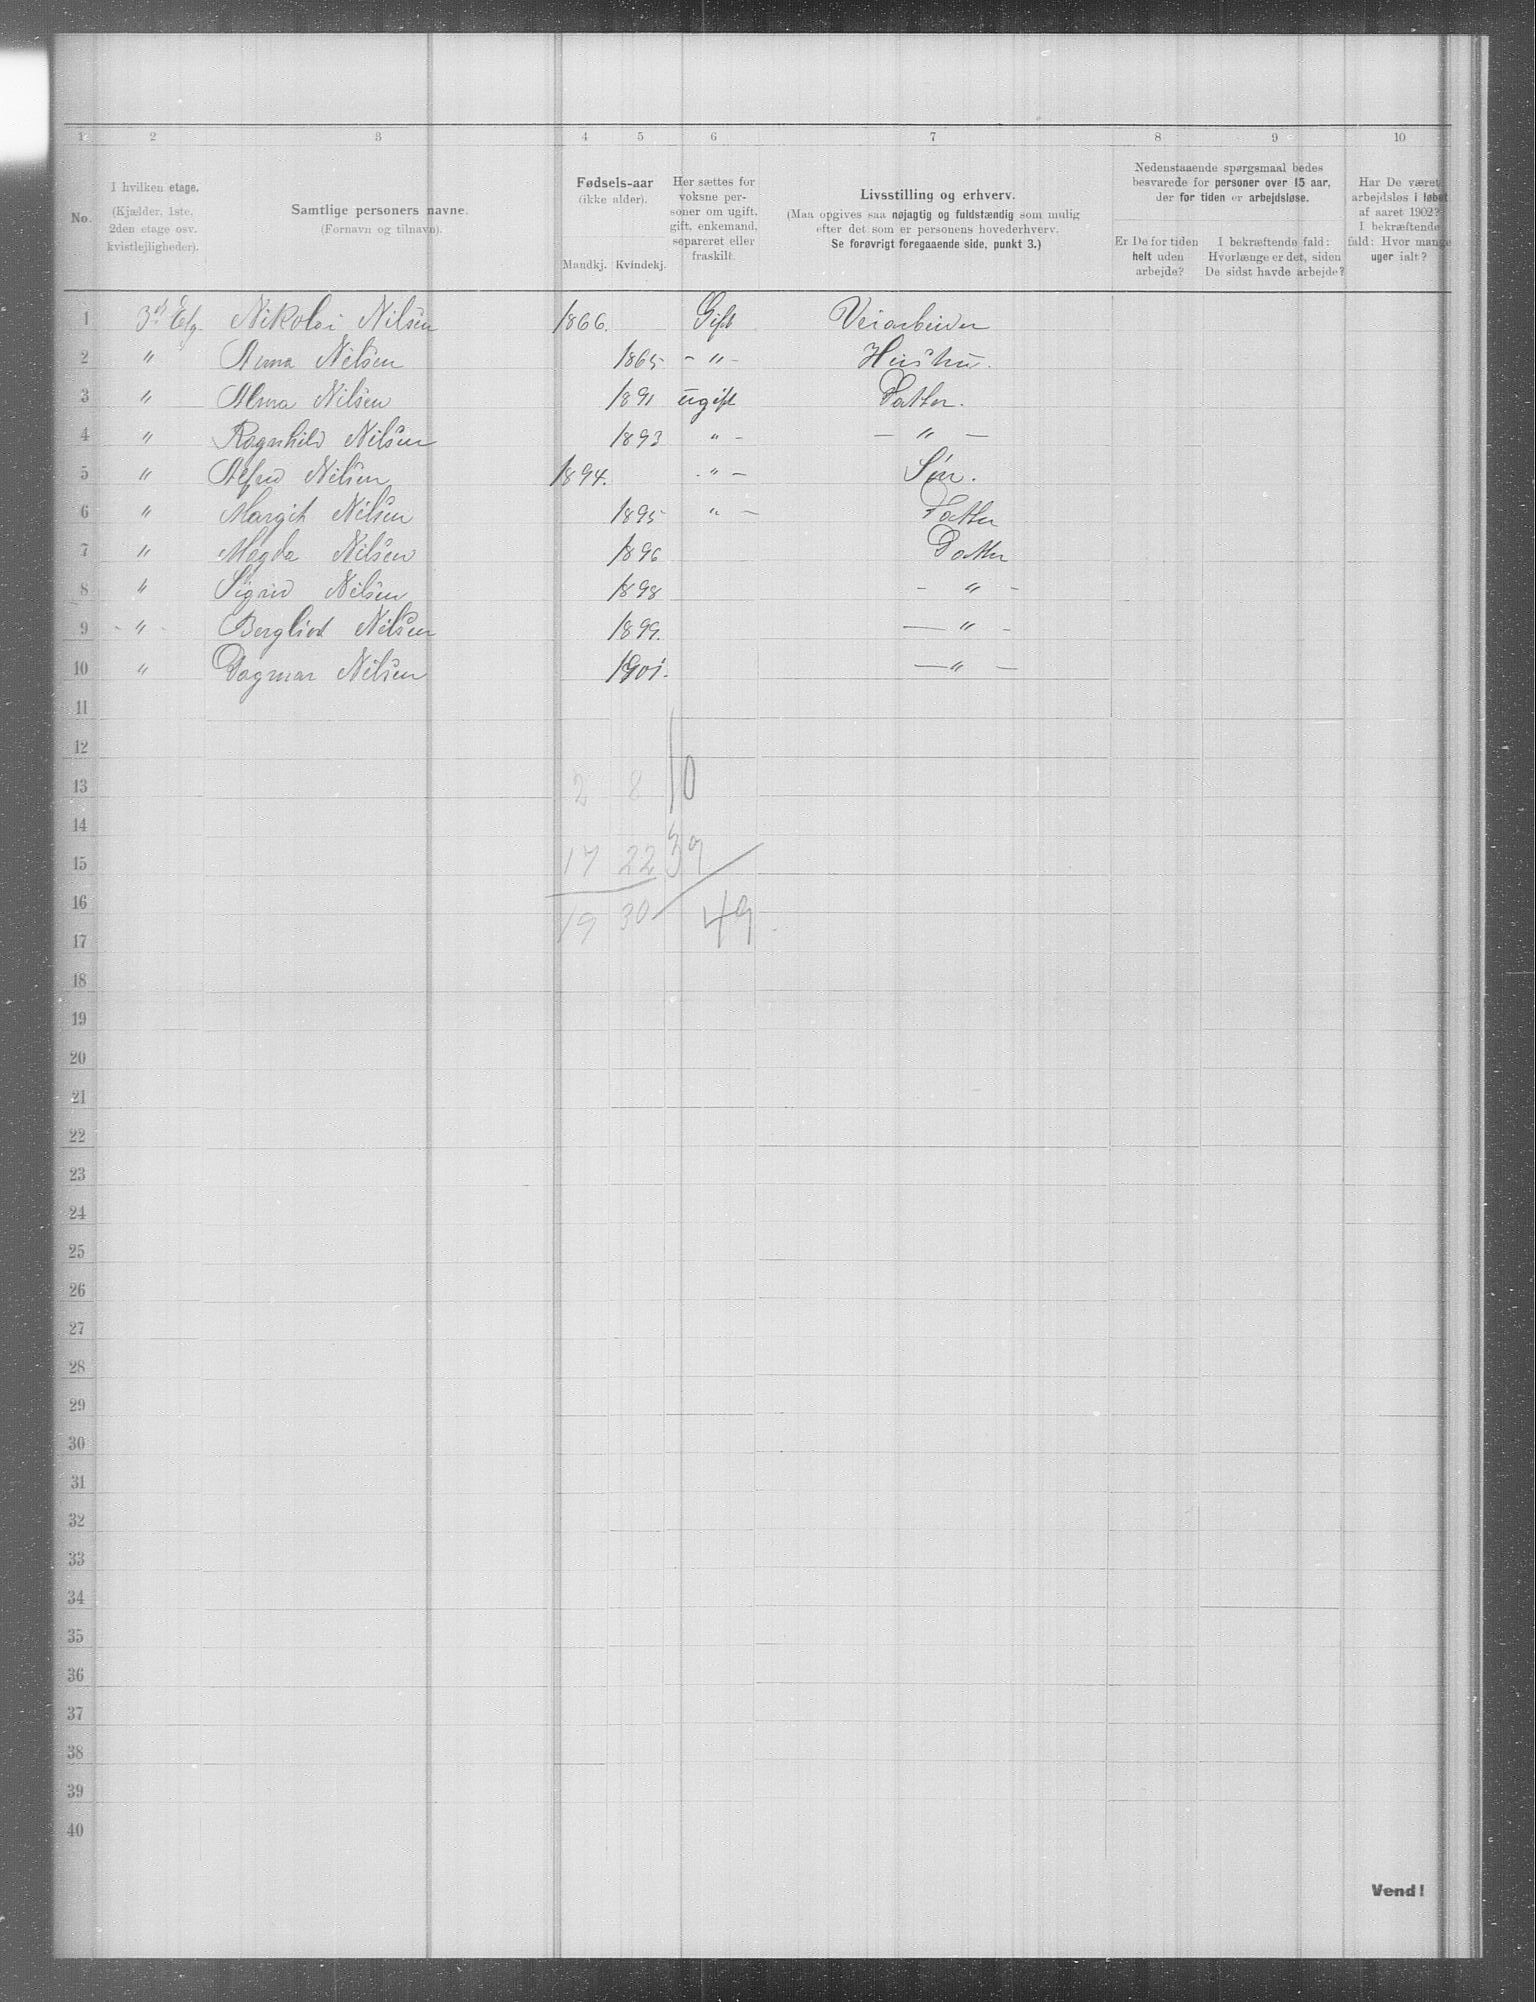 1 2 3 4 5 6 7 8 9 10
No.
I hvilken etage.
(Kjælder, 1ste,
2den etage osv.
kvistlejligheder).
Samtlige personers navne.
(Fornavn og tilnavn).
Fødsels-aar
(ikke alder).
Mandkj. Kvindekj.
Her sættes for
voksne per-
soner om ugift,
gift, enkemand,
separeret eller
fraskilt.
Livsstilling og erhverv.
(Maa opgives saa nøjagtig og fuldstændig som mulig
efter det som er personens hovederhverv.
Se forøvrigt foregaaende side, punkt 3.)
Nedenstaaende spørgsmaal bedes
besvarede for personer over 15 aar,
der for tiden er arbejdsløse.
Er De for tiden
helt uden
arbejde?
I bekræftende fald:
Hvorlænge er det, siden
De sidst havde arbejde?
Har De været
arbejdsløs i løbet
af aaret 1902?
I bekræftende
fald: Hvor mange
uger ialt?
1 3d Etg. Nikolai Nilsen 1866. Gift Veiarbeider
2 " Anna Nilsen 1865 - " - Hustru.
3 " Alma Nilsen 1891 ugift Datter.
4 " Ragnhild Nilsen 1893 " - — " —
5 " Alfred Nilsen 1894. " - Søn.
6 " Margit Nilsen 1895 " — Datter
7 " Magda Nilsen 1896 Datter
8 " Sigrid Nilsen 1898 - " -
9 - " - Bergliot Nilsen 1899. — " -
10 " Dagmar Nilsen 1901. — " —
11
12
13 2 8 10
14
15 17 22 39
16
17 19 30 49
18
19
20
21
22
23
24
25
26
27
28
29
30
31
32
33
34
35
36
37
38
39
40
Vend!